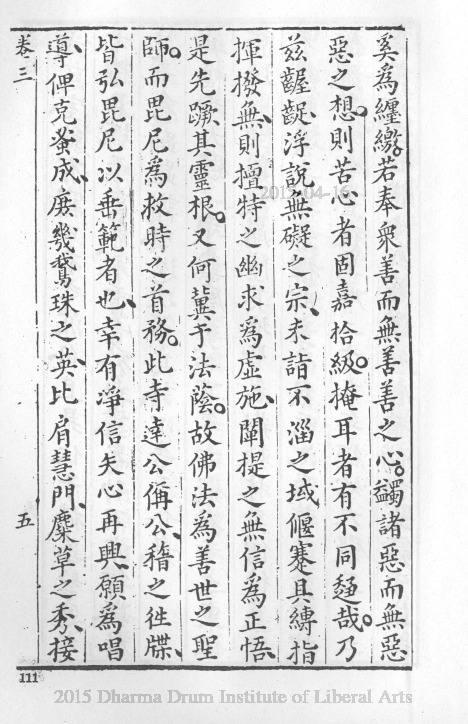 奚為纏繳。若奉衆善而無善善之心。蠲諸惡而無惡
惡之想。則苦心者固嘉拾級。掩耳者有不同趨哉。乃
茲齷齪浮說無礙之宗、未詣不淄之域偃蹇具縛指
揮撥無、則擅特之幽求為虛施、闡提之無信為正悟、
是先蹶其靈根。又何冀于法蔭。故佛法為善世之聖
師。而毘尼為救時之首務。此寺達公偁公、稽之徃牒、
皆弘毘尼以垂範者也、幸有淨信矢心再興、願為唱
導、俾克蚤成、庶幾鵞珠之英、比肩慧門、麋草之秀、接
卷三
五
111
2015-04-16
2015 Dharma Drum Institute of Liberal Arts